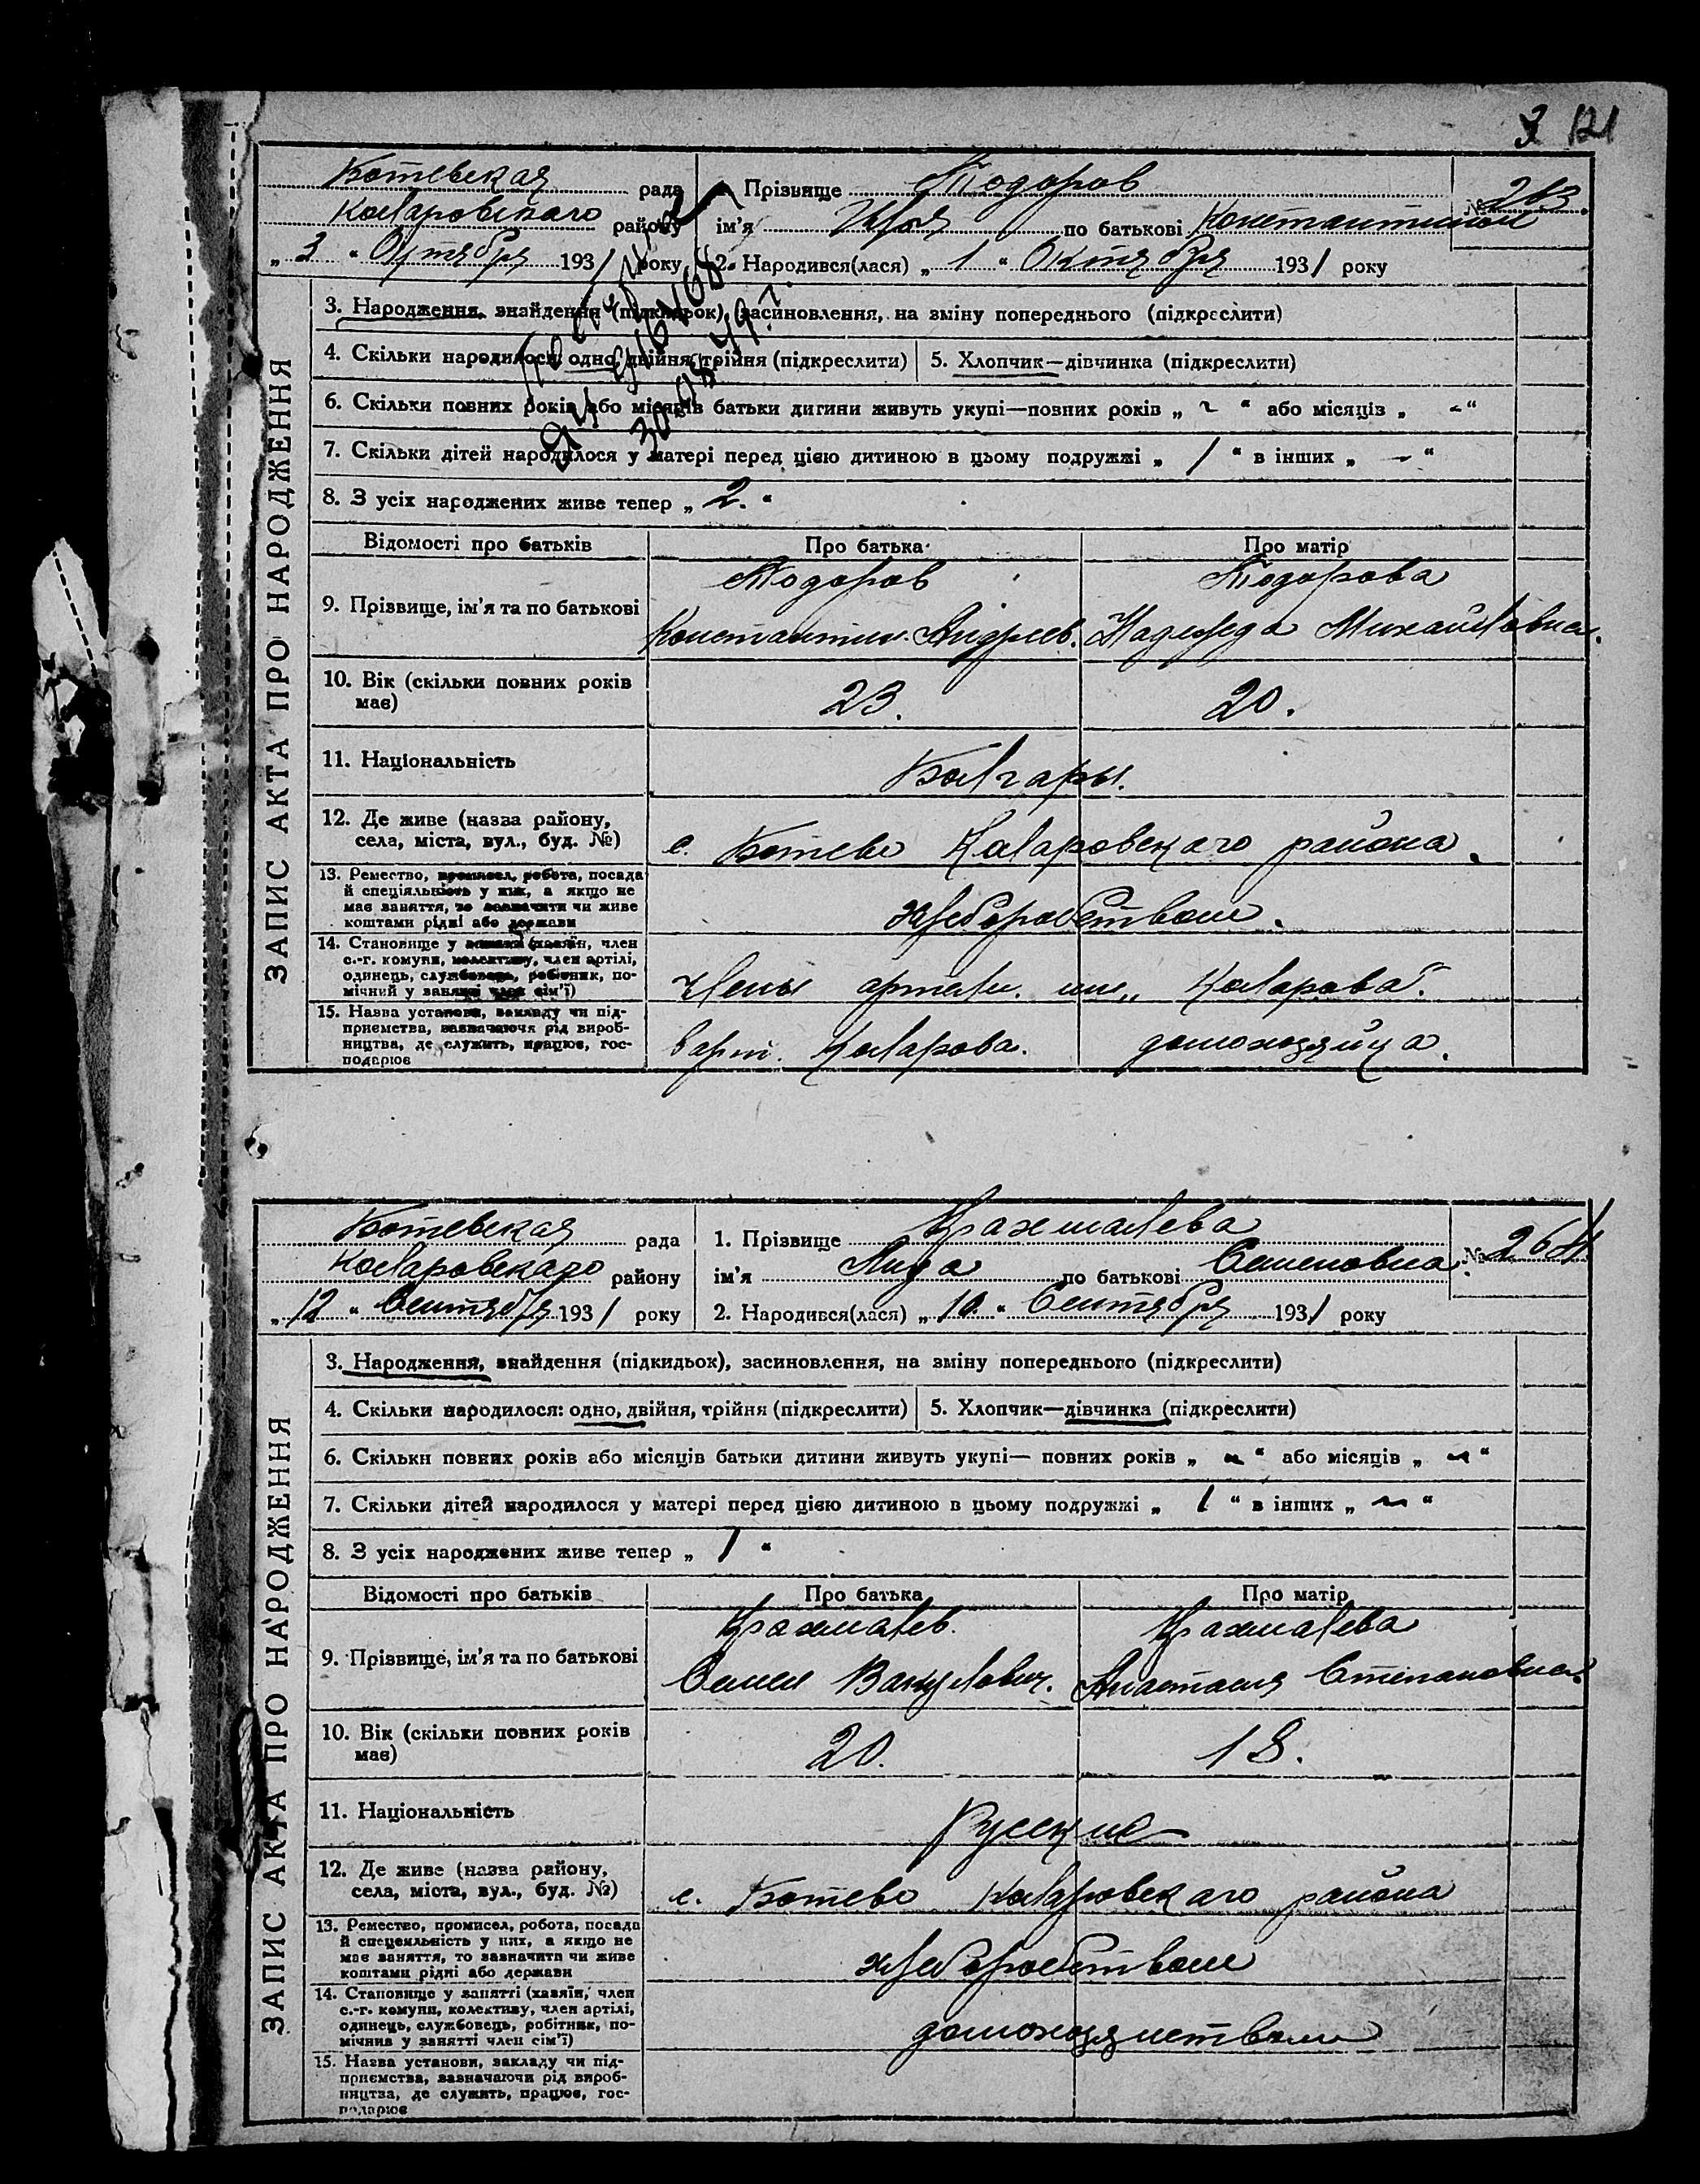 3 121
Ботевская рада
Коларовского району
„ 3 “ Октября 1931 року
1. Прізвище Тодоров
ім’я Илья по батькові Константинов
№ 263.
2. Народився(лася) „ 1 “ Октября 1931 року
ЗАПИС АКТА ПРО НАРОДЖЕННЯ
3. Народження, знайдення (підкидьок), засиновлення, на зміну попереднього (підкреслити)
4. Скільки народилося: одно, двійня, трійня (підкреслити)
5. Хлопчик—дівчинка (підкреслити)
6. Скільки повних років або місяців батьки дитини живуть укупі—повних років „ ~ “ або місяців „ ~ “
7. Скільки дітей народилося у матері перед цією дитиною в цьому подружжі „ 1 “ в інших „ ~ “
8. З усіх народжених живе тепер „ 2. “
Відомості про батьків Про батька Про матір
9. Прізвище, ім’я та по батькові
Тодоров
Константин Андреев.
Тодорова
Надежда Михайловна.
10. Вік (скільки повних років має) 23. 20.
11. Національність Болгары.
12. Де живе (назва району, села, міста, вул., буд. №)
с. Ботево Коларовского района.
13. Ремество, промисел, робота, посада
й спеціяльність у них, а якщо не
має заняття, то зазначити чи живе
коштами рідні або держави
хлеборобством.
14. Становище у занятті (хазяїн, член
с.-г. комуни, колективу, член артілі,
одинець, службовець, робітник, по-
мічний у занятті член сім’ї)
Члены артели им „Коларова“.
15. Назва установи, закладу чи під-
приємства, зазначаючи рід вироб-
ництва, де служить, працює, гос-
подарює
в арт. Коларова. домохозяйка.
Ботевская рада
Коларовского району
„ 12 “ Сентября 1931 року
1. Прізвище Крахмалева
ім’я Лида по батькові Семеновна.
№ 264.
2. Народився(лася) „ 10. “ Сентября 1931 року
ЗАПИС АКТА ПРО НАРОДЖЕННЯ
3. Народження, знайдення (підкидьок), засиновлення, на зміну попереднього (підкреслити)
4. Скільки народилося: одно, двійня, трійня (підкреслити)
5. Хлопчик—дівчинка (підкреслити)
6. Скільки повних років або місяців батьки дитини живуть укупі— повних років „ ~ “ або місяців „ ~ “
7. Скільки дітей народилося у матері перед цією дитиною в цьому подружжі „ 1 “ в інших „ ~ “
8. З усіх народжених живе тепер „ 1 “
Відомості про батьків Про батька Про матір
9. Прізвище, ім’я та по батькові
Крахмалев.
Семен Вакулович.
Крахмалева
Анастасия Степановна
10. Вік (скільки повних років має) 20. 18.
11. Національність Русские
12. Де живе (назва району, села, міста, вул., буд. №)
с. Ботево Коларовского района
13. Ремество, промисел, робота, посада
й спецеяльність у них, а якщо не
має заняття, то зазначити чи живе
коштами рідні або держави
хлеборобством
14. Становище у занятті (хазяїн, член
с.-г. комуни, колективу, член артілі,
одинець, службовець, робітник, по-
мічния у занятті член сім’ї)
домохозяйством
15. Назва установи, закладу чи під-
приємства, зазначаючи рід вироб-
ництва, де служить, працює, гос-
подарює